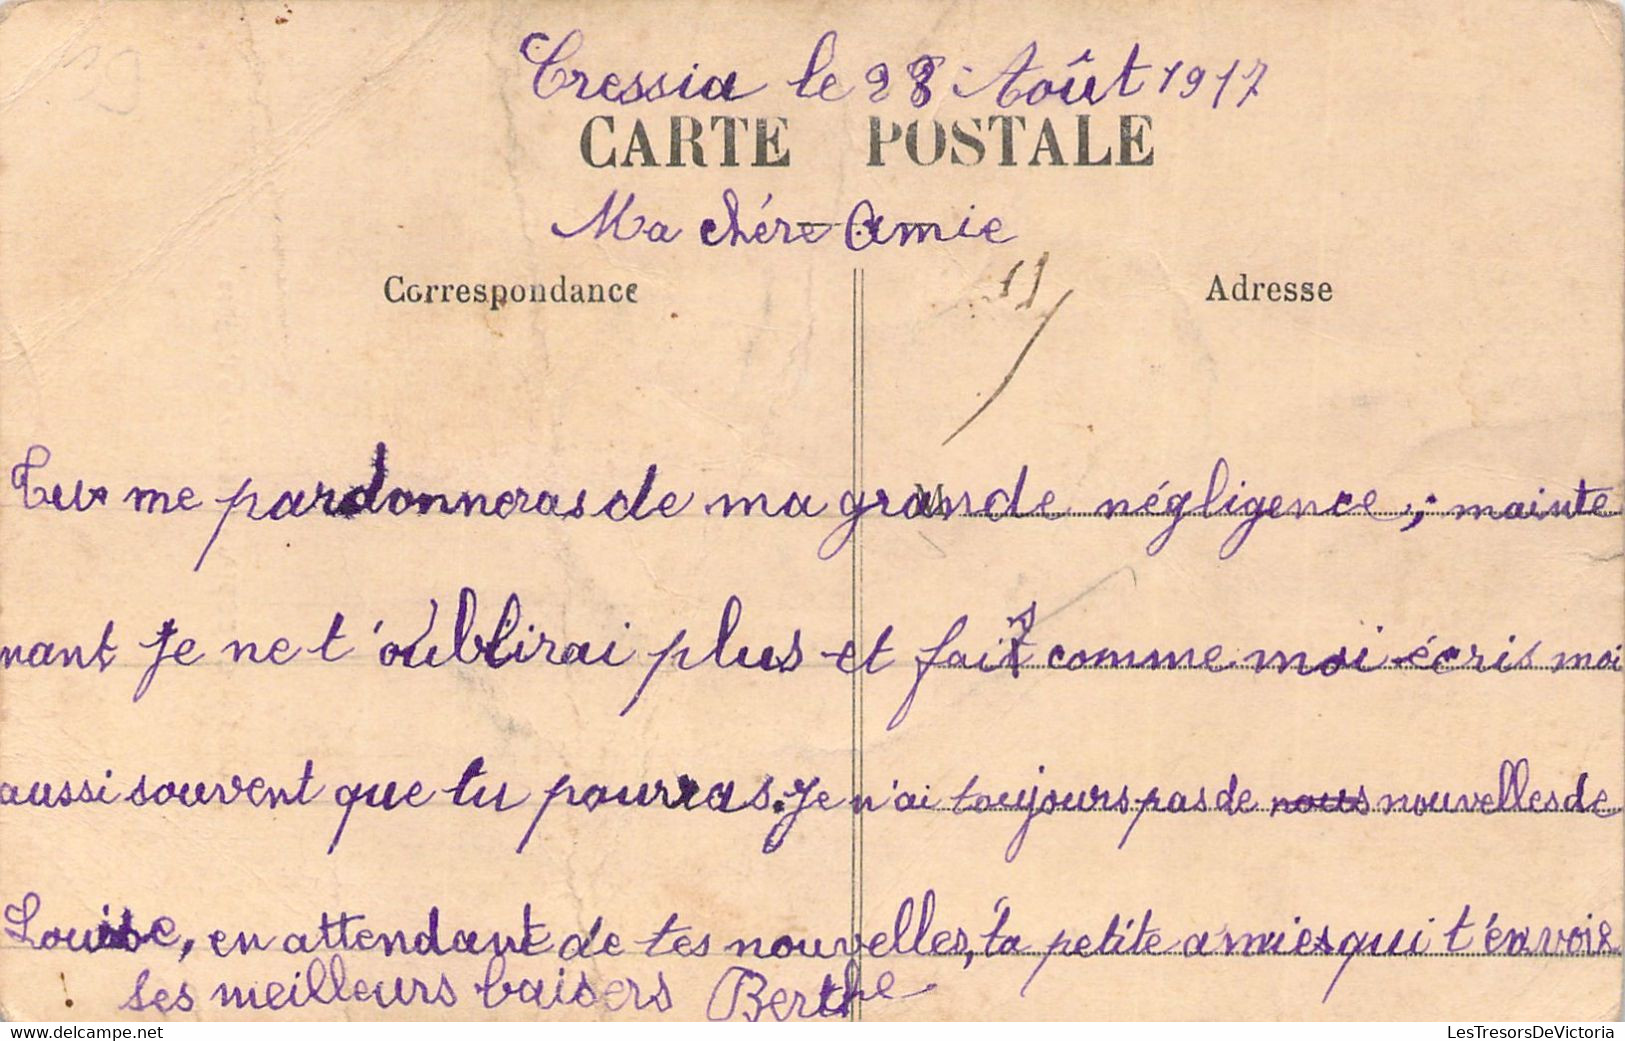 Cressia le 28 Août 1917
CARTE POSTALE
Ma chére Amie
Correspondance
Adresse
Tu me pardonneras de ma grande négligence, mainte
nant je ne t'oublirai plus et fais comme moi écris moi
aussi souvent que tu pourras. Je n'ai toujours pas de nous nouvelles de
Louise, en attendant de tes nouvelles, ta petite amie qui t'envoie
ses meilleurs baisers Berthe
LesTresorsDeVictoria